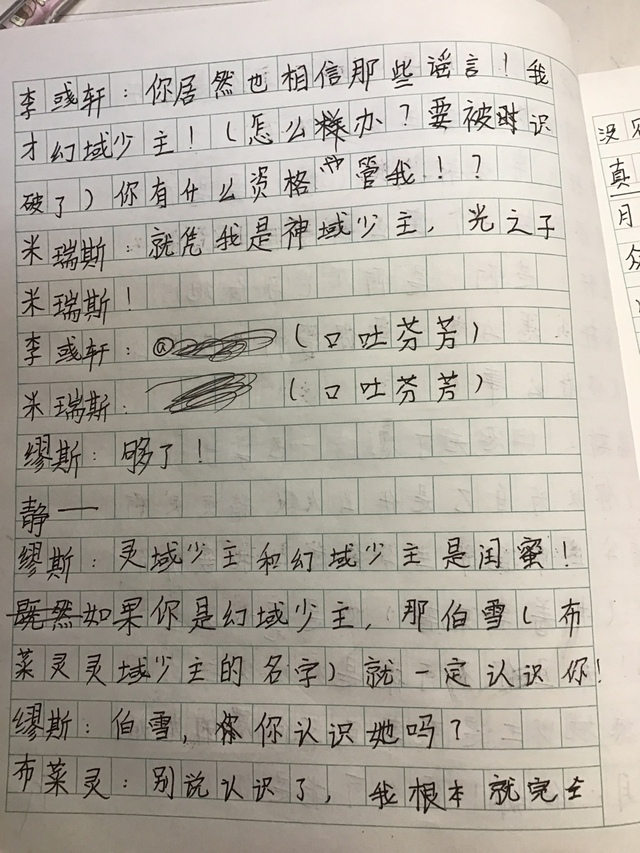 李彧轩：你居然也相信那些谣言！我
才幻域少主！（怎么样办？要被时识
破了）你有什么资格管我！？
米瑞斯：就凭我是神域少主，光之子
米瑞斯！
李彧轩：@（口吐芬芳）
米瑞斯：（口吐芬芳）
缪斯：够了！
静——
缪斯：灵域少主和幻域少主是闺蜜！
既然如果你是幻域少主，那伯雪（布
莱灵灵域少主的名字）就一定认识你！
缪斯：伯雪，你你认识她吗？
布莱灵：别说认识了，我根本就完全
没
真
月